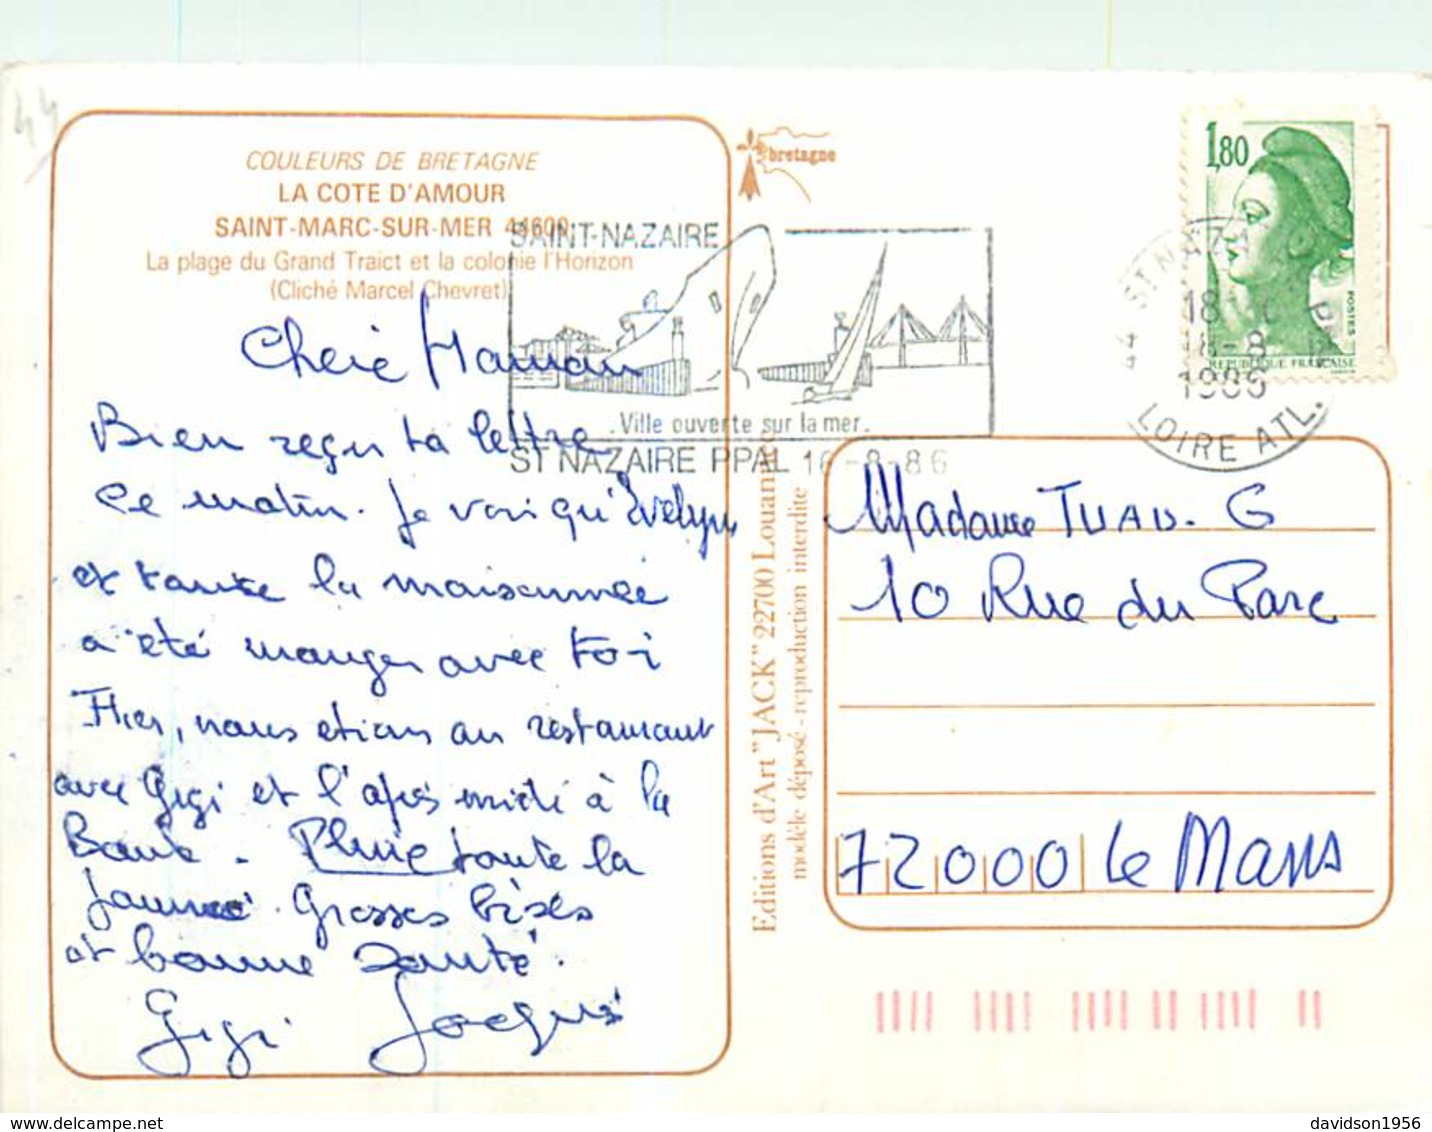 44
COULEURS DE BRETAGNE
LA COTE D'AMOUR
SAINT-MARC-SUR-MER 44600
La plage du Grand Traict et la colonie l'Horizon
(Cliché Marcel Chevret)
bretagne
1,80
POSTES
REPUBLIQUE FRANÇAISE
SAINT-NAZAIRE
Ville ouverte sur la mer.
ST NAZAIRE PPAL 18-8-86
44 ST NAZAIRE
18
18-8
1986
LOIRE ATL.
Chère Maman
Bien reçu ta lettre
ce matin. Je voi qu'Evelyn
et toute la maisonnée
a été manger avec toi
Hier, nous etions au restaurant
avec Gigi et l'après midi à la
Baule. Pluie toute la
journée. Grosses bises
et bonne Santé.
Gigi Jacques
Editions d'Art "JACK" 22700 Louannec
modèle déposé - reproduction interdite
Madame TUAU. G
10 Rue du Parc
72000 Le Mans
davidson1956